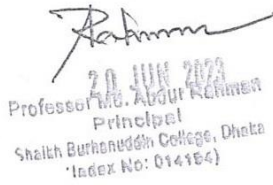 Rahman
20 JUN 2023
Professor Md. Abdur Rahman
Principal
Shaikh Burhanuddin College, Dhaka
(Index No: 014154)